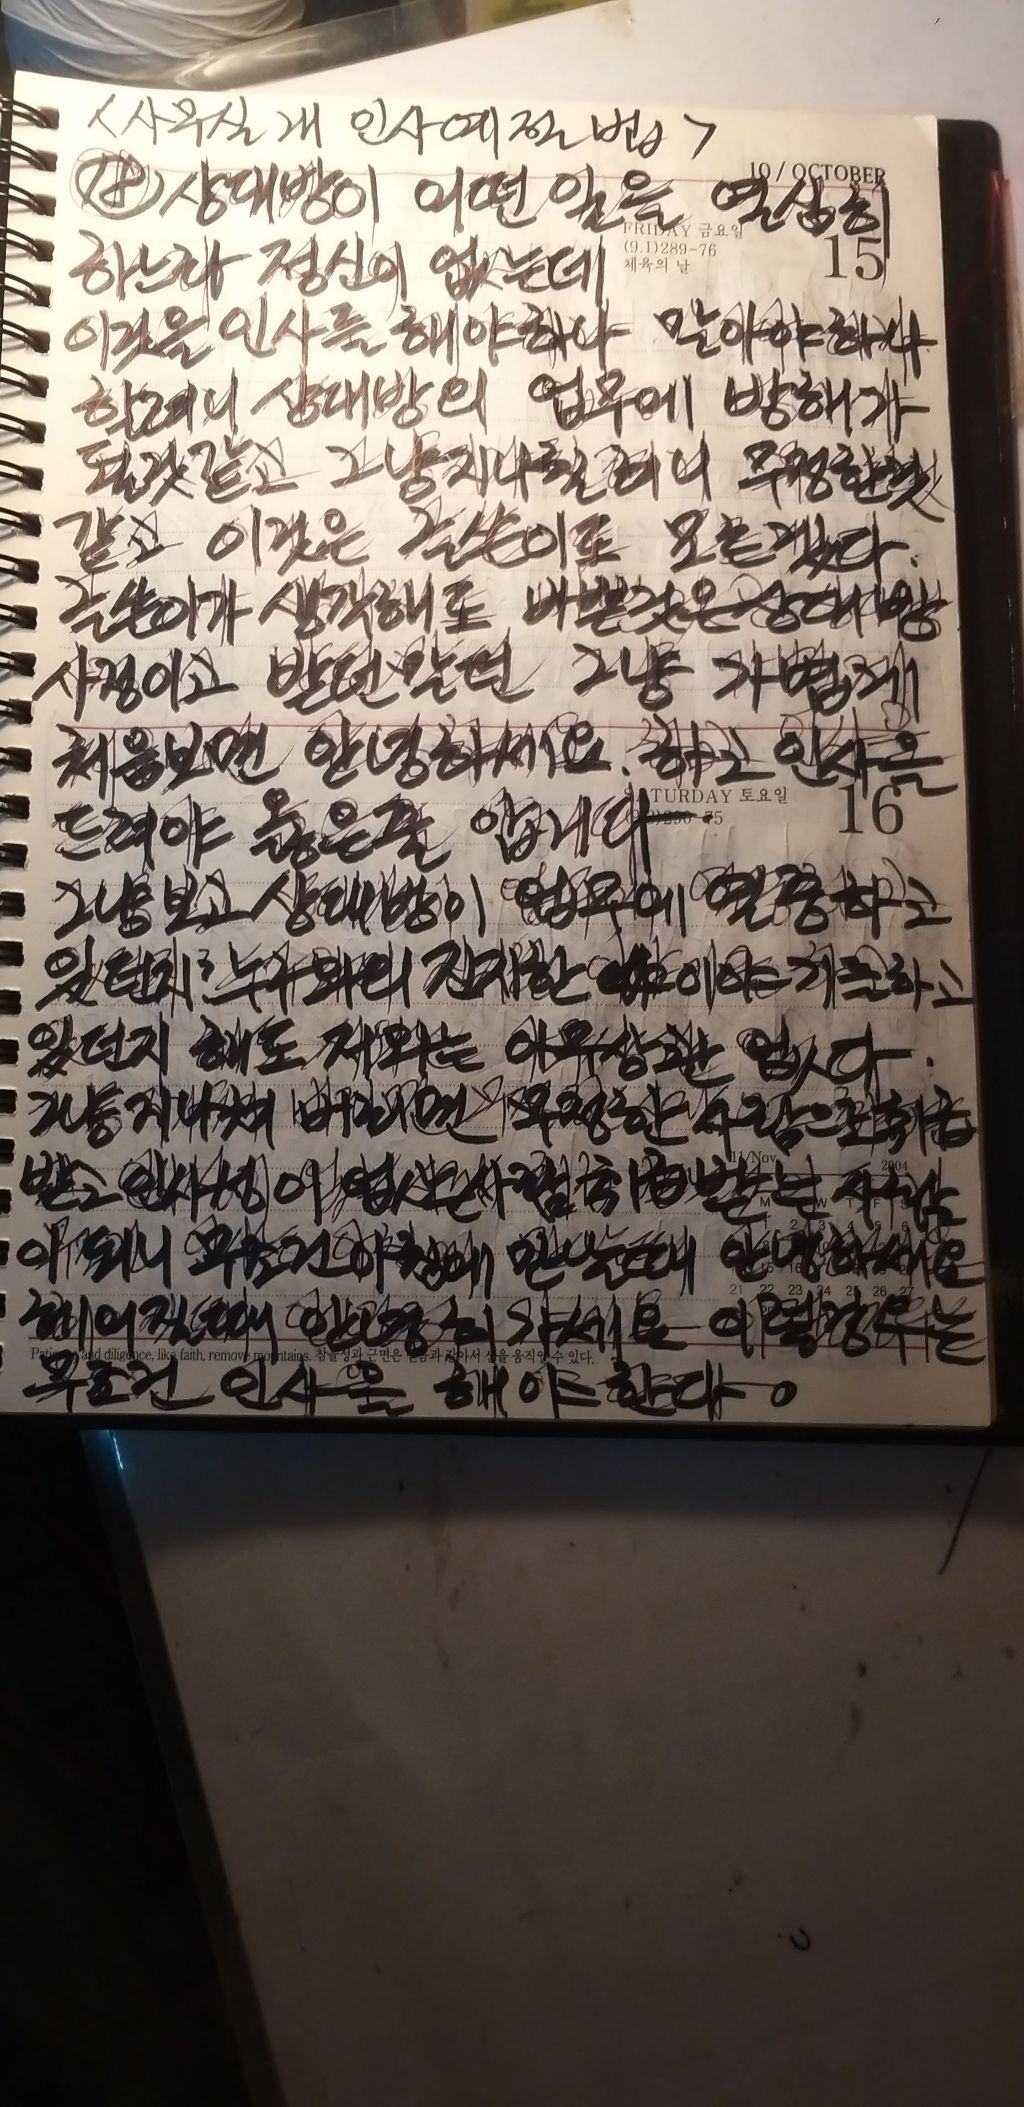 <사무실 개 인사예절법>
10 / OCTOBER
(18) 상대방이 어떤 일을 열심히
FRIDAY 금요일
(9.1)289-76
체육의 날
15
하느라 정신이 없는데
이것을 인사를 해야하나 말아야하나
할려니 상대방의 업무에 방해가
될것같고 그냥지나칠려니 무정한것
같고 이것은 글쓴이도 모르겠다.
글쓴이가 생각해도 바쁜것은 상대방
사정이고 받던말던 그냥 가볍게
처음보면 안녕하세요. 하고 인사를
SATURDAY 토요일
16
드려야 옳은줄 압니다
그냥보고 상대방이 업무에 열중하고
있던지 누구와의 진지한 이야기를하고
있던지 해도 저와는 아무상관 없다.
그냥 지나쳐 버리면 무정한 사람으로취급
11/Nov.
2004
받고 인사성이 없는사람취급받는 세상
이되니 무조건 아침에 만났을때 안녕하세요
21 22 23 24 25 26 27
헤어질때 안녕히 가세요 이럴경우는
Patience and diligence, like faith, remove mountains. 참을성과 근면은 믿음과 같아서 산을 움직일 수 있다.
무조건 인사를 해야한다.